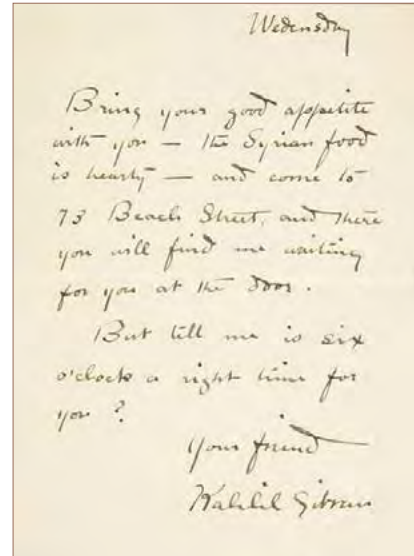 Wedensday
Bring your good appetite
with you — the Syrian food
is hearty — and come to
73 Beach Street, and there
you will find me waiting
for you at the door.
But till me is six
o'clock a right time for
you?
Your friend
Kahlil Gibran